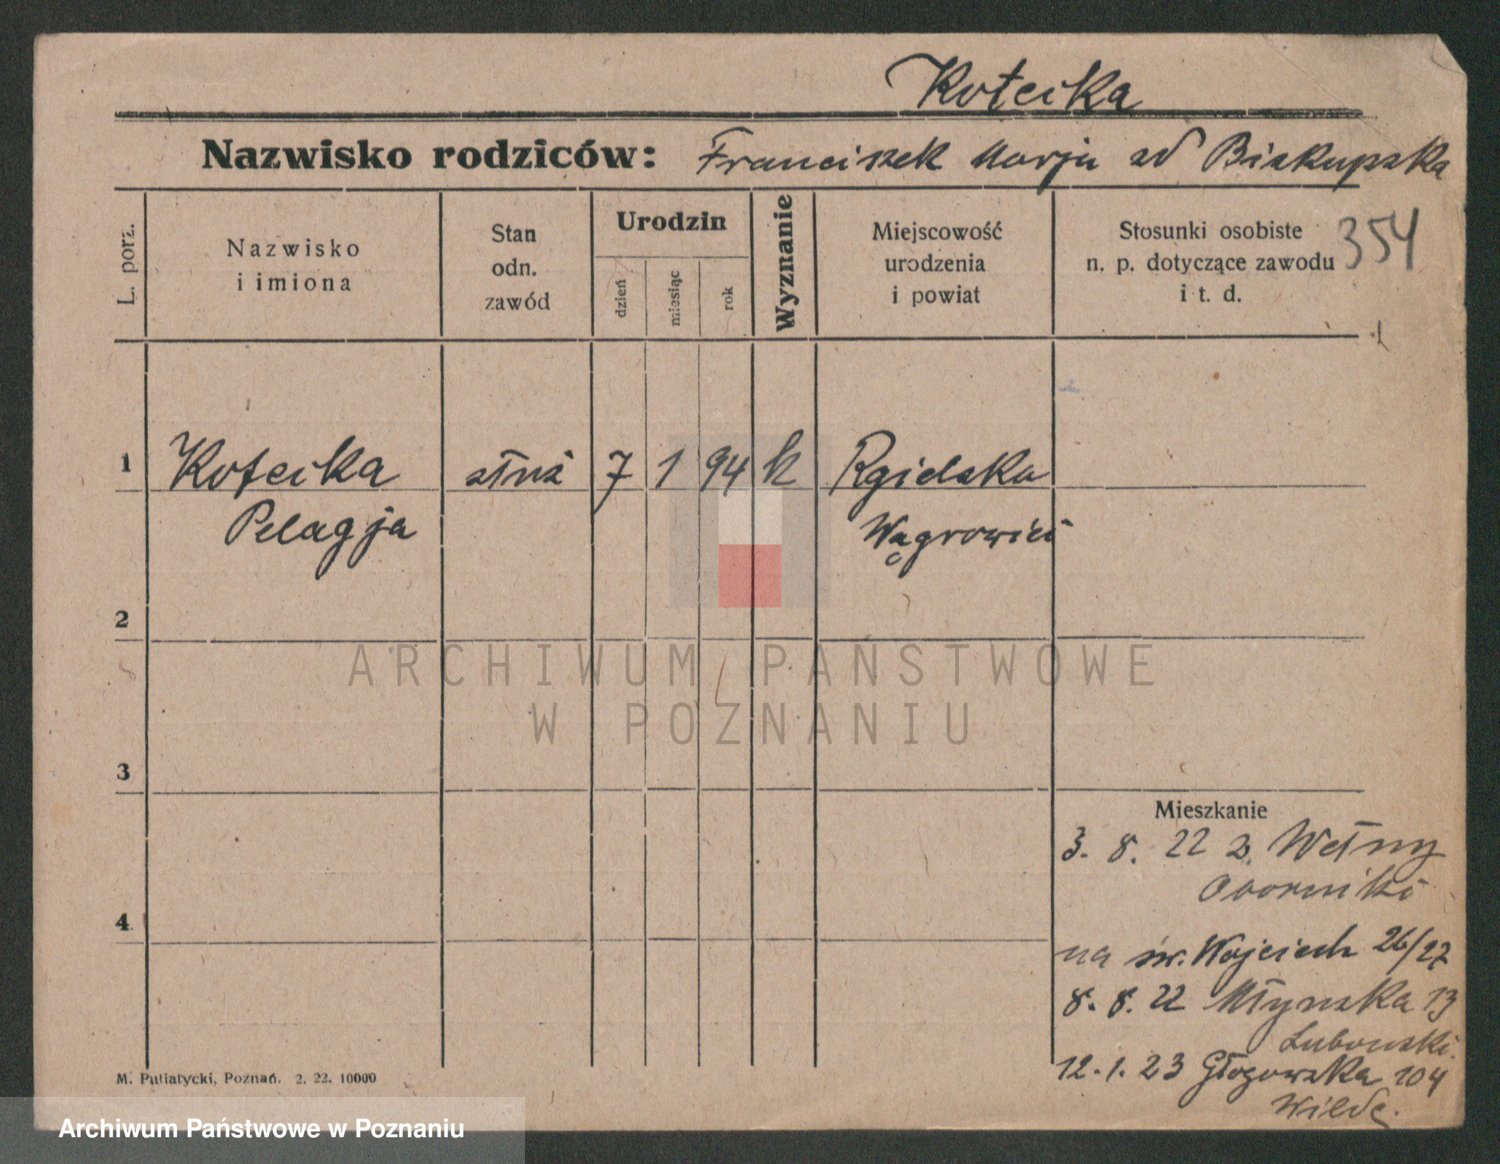 Kotecka
Nazwisko rodziców: Franciszek Marja zd Biskupska
L. porz.
Nazwisko
i imiona
Stan
odn.
zawód
Urodzin
dzień
miesiąc
rok
Wyznanie
Miejscowość
urodzenia
i powiat
Stosunki osobiste
n. p. dotyczące zawodu
i t. d.
354
1 Kotecka służ 7 1 94 k Rgielska
Pelagja Wągrowiec
2
3
4
Mieszkanie
3. 8. 22 z Wełny
Oborniki
na św. Wojciech 26/27
8. 8. 22 Młyńska 13
Lubowski
12. 1. 23 Głogowska 104
Wilde.
M. Putiatycki, Poznań. 2. 22. 10000
ARCHIWUM PAŃSTWOWE
W POZNANIU
Archiwum Państwowe w Poznaniu